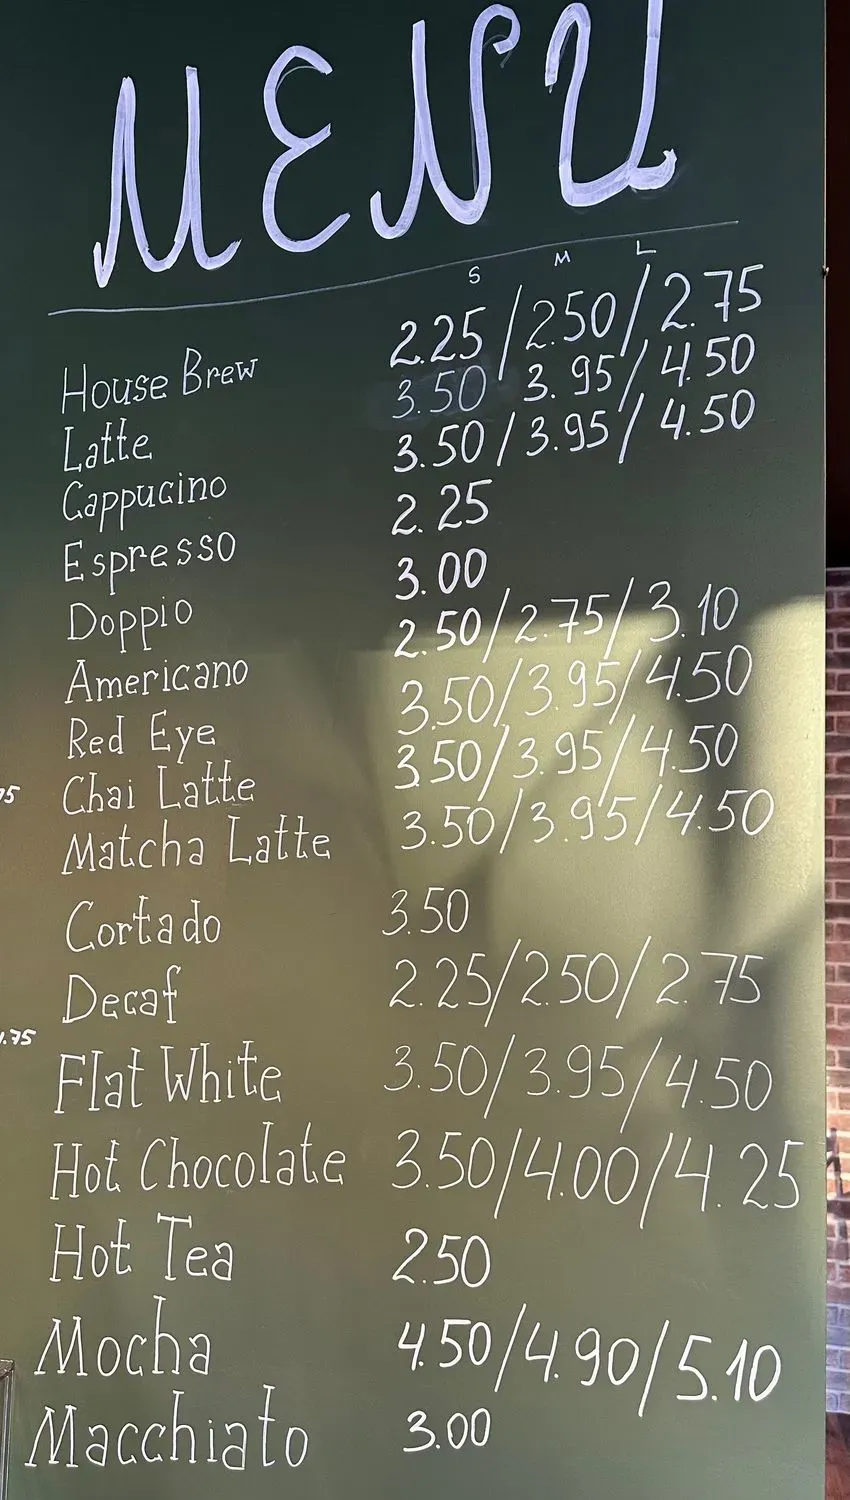 MENU
S M L
House Brew 2.25/2.50/2.75
Latte 3.50/3.95/4.50
Cappucino 3.50/3.95/4.50
Espresso 2.25
Doppio 3.00
Americano 2.50/2.75/3.10
Red Eye 3.50/3.95/4.50
Chai Latte 3.50/3.95/4.50
Matcha Latte 3.50/3.95/4.50
Cortado 3.50
Decaf 2.25/2.50/2.75
Flat White 3.50/3.95/4.50
Hot Chocolate 3.50/4.00/4.25
Hot Tea 2.50
Mocha 4.50/4.90/5.10
Macchiato 3.00